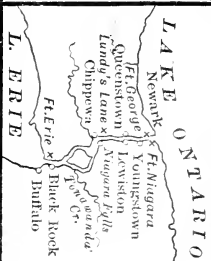 LAKE ONTARIO
Ft. George
Newark
Ft. Niagara
Youngstown
Queenstown
Lewiston
Lundy's Lane
Niagara Falls
Chippewa
Tonawanda Cr.
Ft. Erie
Black Rock
Buffalo
L. ERIE